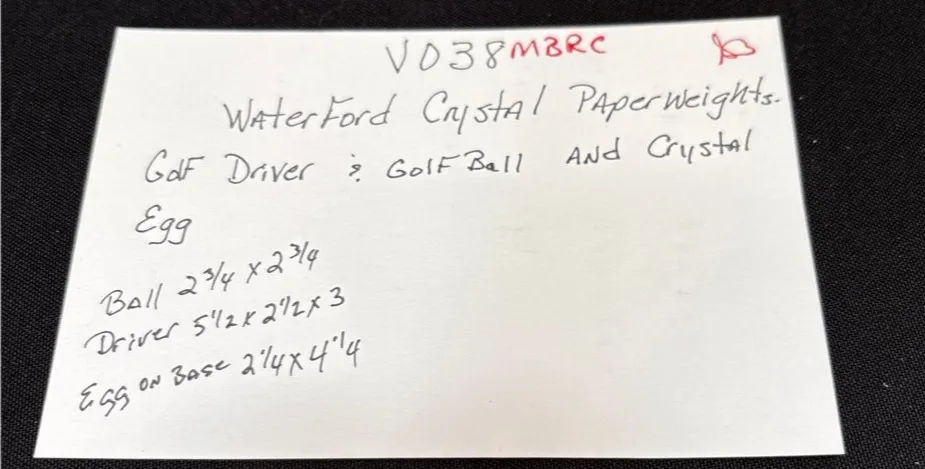 V038 MBRC
Waterford Crystal Paperweights.
Golf Driver & Golf Ball And Crystal
Egg
Ball 2 3/4 x 2 3/4
Driver 5 1/2 x 2 1/2 x 3
Egg on Base 2 1/4 x 4 1/4